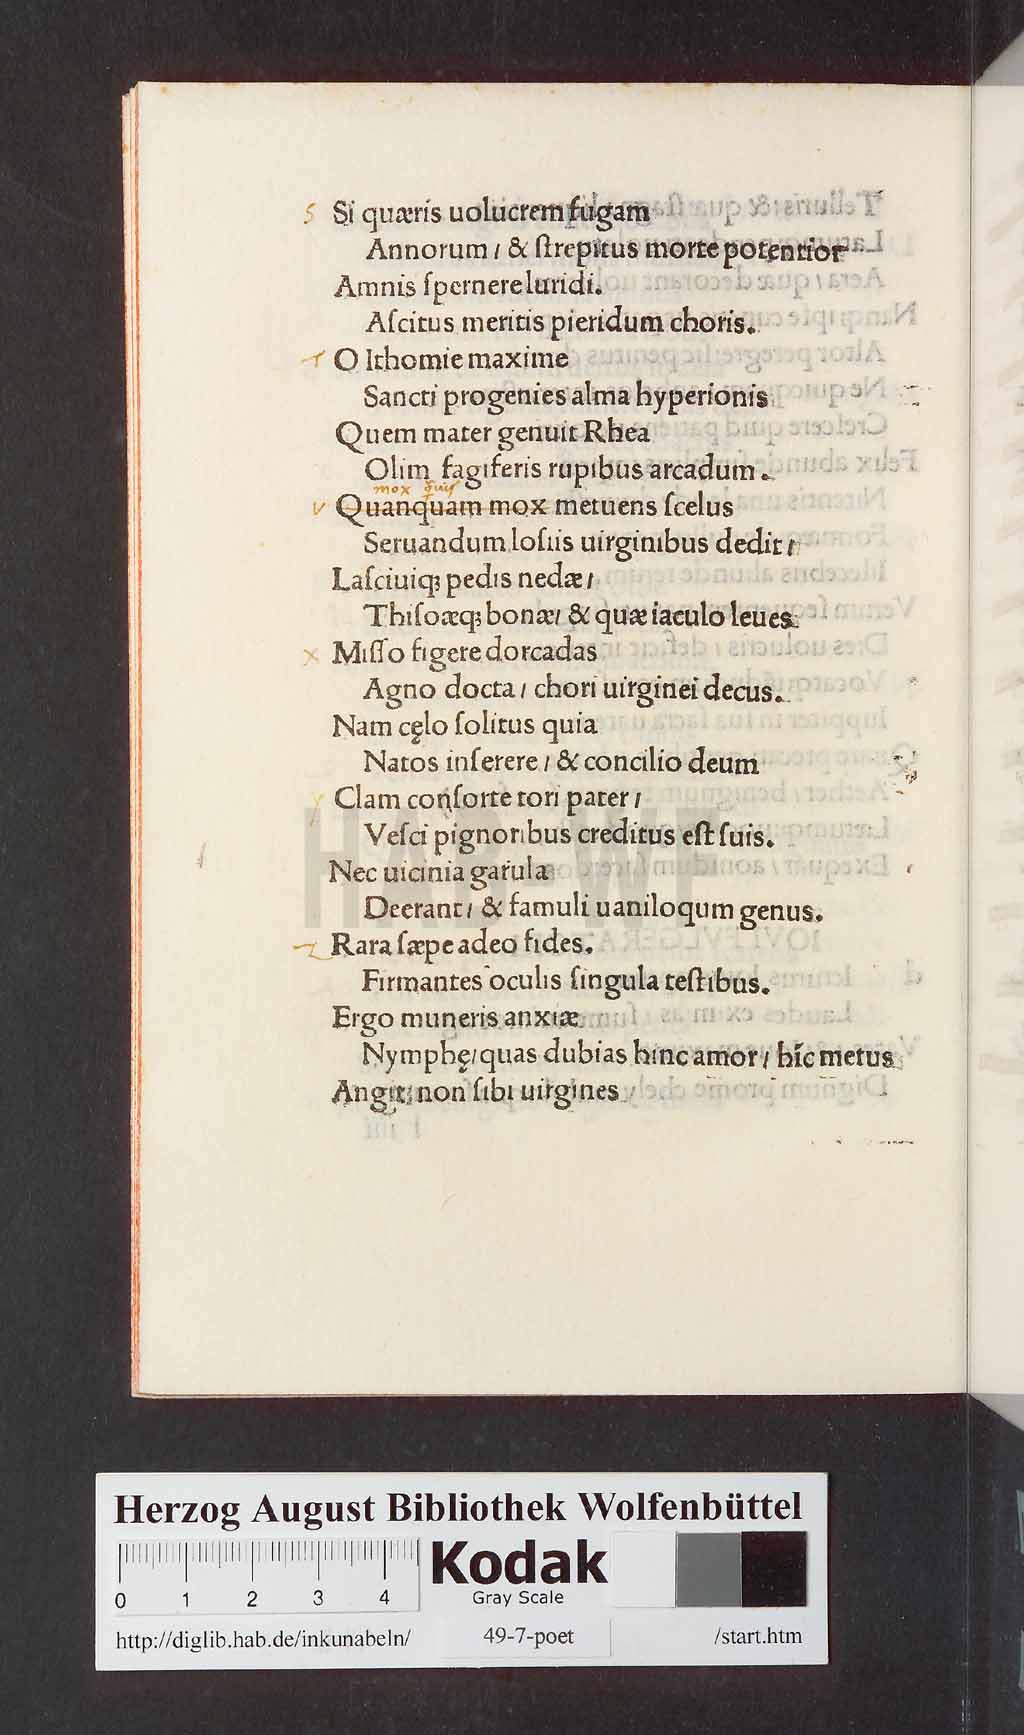 s Si quæris uolucrem fugam
Annorum / & ſtrepitus morte potentior
Amnis ſpernere luridi.
Aſcitus meritis pieridum choris.
t O Ithomie maxime
Sancti progenies alma hyperionis
Quem mater genuit Rhea
Olim fagiferis rupibus arcadum.
mox quis
v Quanquam mox metuens ſcelus
Seruandum loſiis uirginibus dedit /
Laſciuiqꝫ pedis nedæ /
Thiſoæqꝫ bonæ / & quæ iaculo leues
x Miſſo figere dorcadas
Agno docta / chori uirginei decus.
Nam cęlo ſolitus quia
Natos inſerere / & concilio deum
y Clam conſorte tori pater /
Veſci pignoribus creditus eſt ſuis.
Nec uicinia garula
Deerant / & famuli uaniloqum genus.
z Rara ſæpe adeo fides.
Firmantes oculis ſingula teſtibus.
Ergo muneris anxiæ
Nymphę / quas dubias hinc amor / hic metus
Angit: non ſibi uirgines
HAB-WF
Herzog August Bibliothek Wolfenbüttel
Kodak
0 1 2 3 4
Gray Scale
http://diglib.hab.de/inkunabeln/ 49-7-poet /start.htm